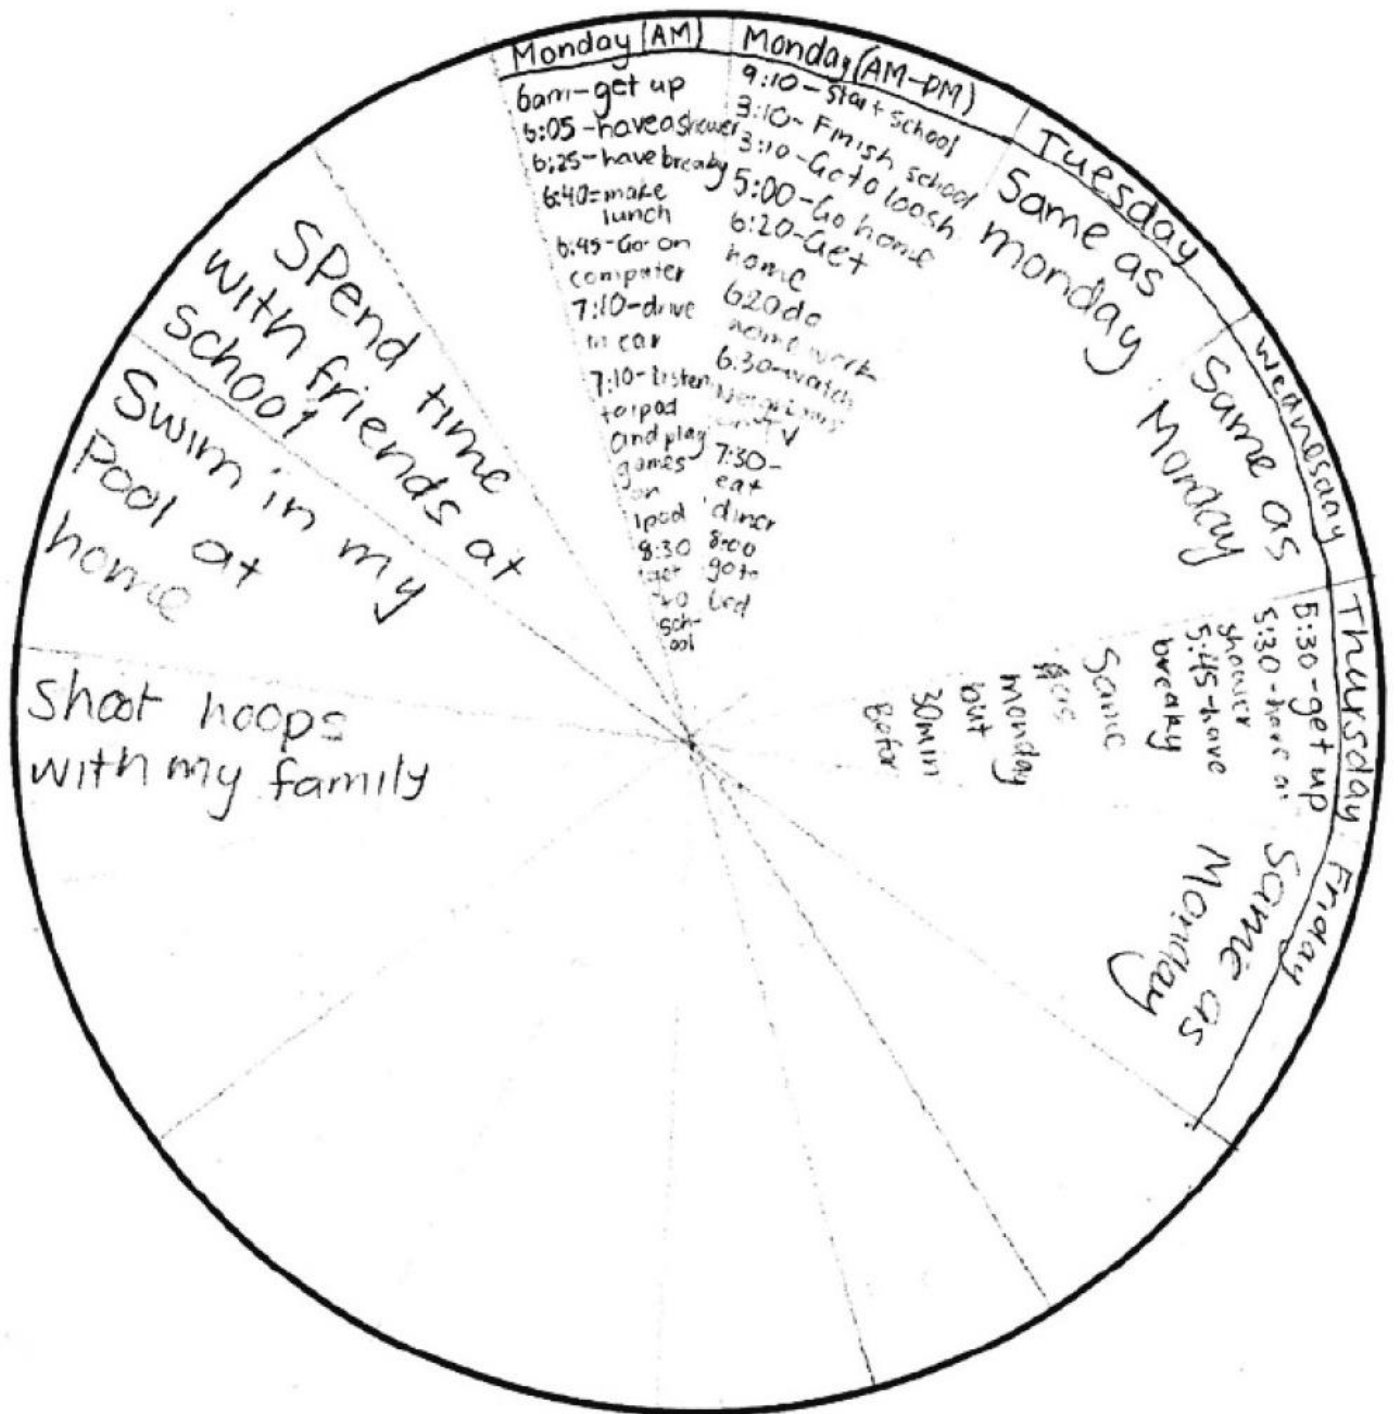 Monday (AM)
6am-get up
6:05-have a shower
6:25-have breaky
6:40=make
lunch
6:45-Go on
computer
7:10-drive
in car
7:10-listen
to ipod
and play
games
on
ipod
8:30
get
to
sch-
ool
Monday (AM-PM)
9:10-start school
3:10-Finish school
3:10-Go to loosh
5:00-Go home
6:20-Get
home
620 do
home work
6:30-watch
TV
7:30-
eat
diner
8:00
go to
bed
Tuesday
Same as
monday
Wednesday
Same as
Monday
Thursday
5:30-get up
5:30-have a
shower
5:45-have
breaky
Same
as
monday
but
30min
Befor
Friday
Same as
Monday
Shoot hoops
with my family
Swim in my
Pool at
home
SPend time
with friends at
school